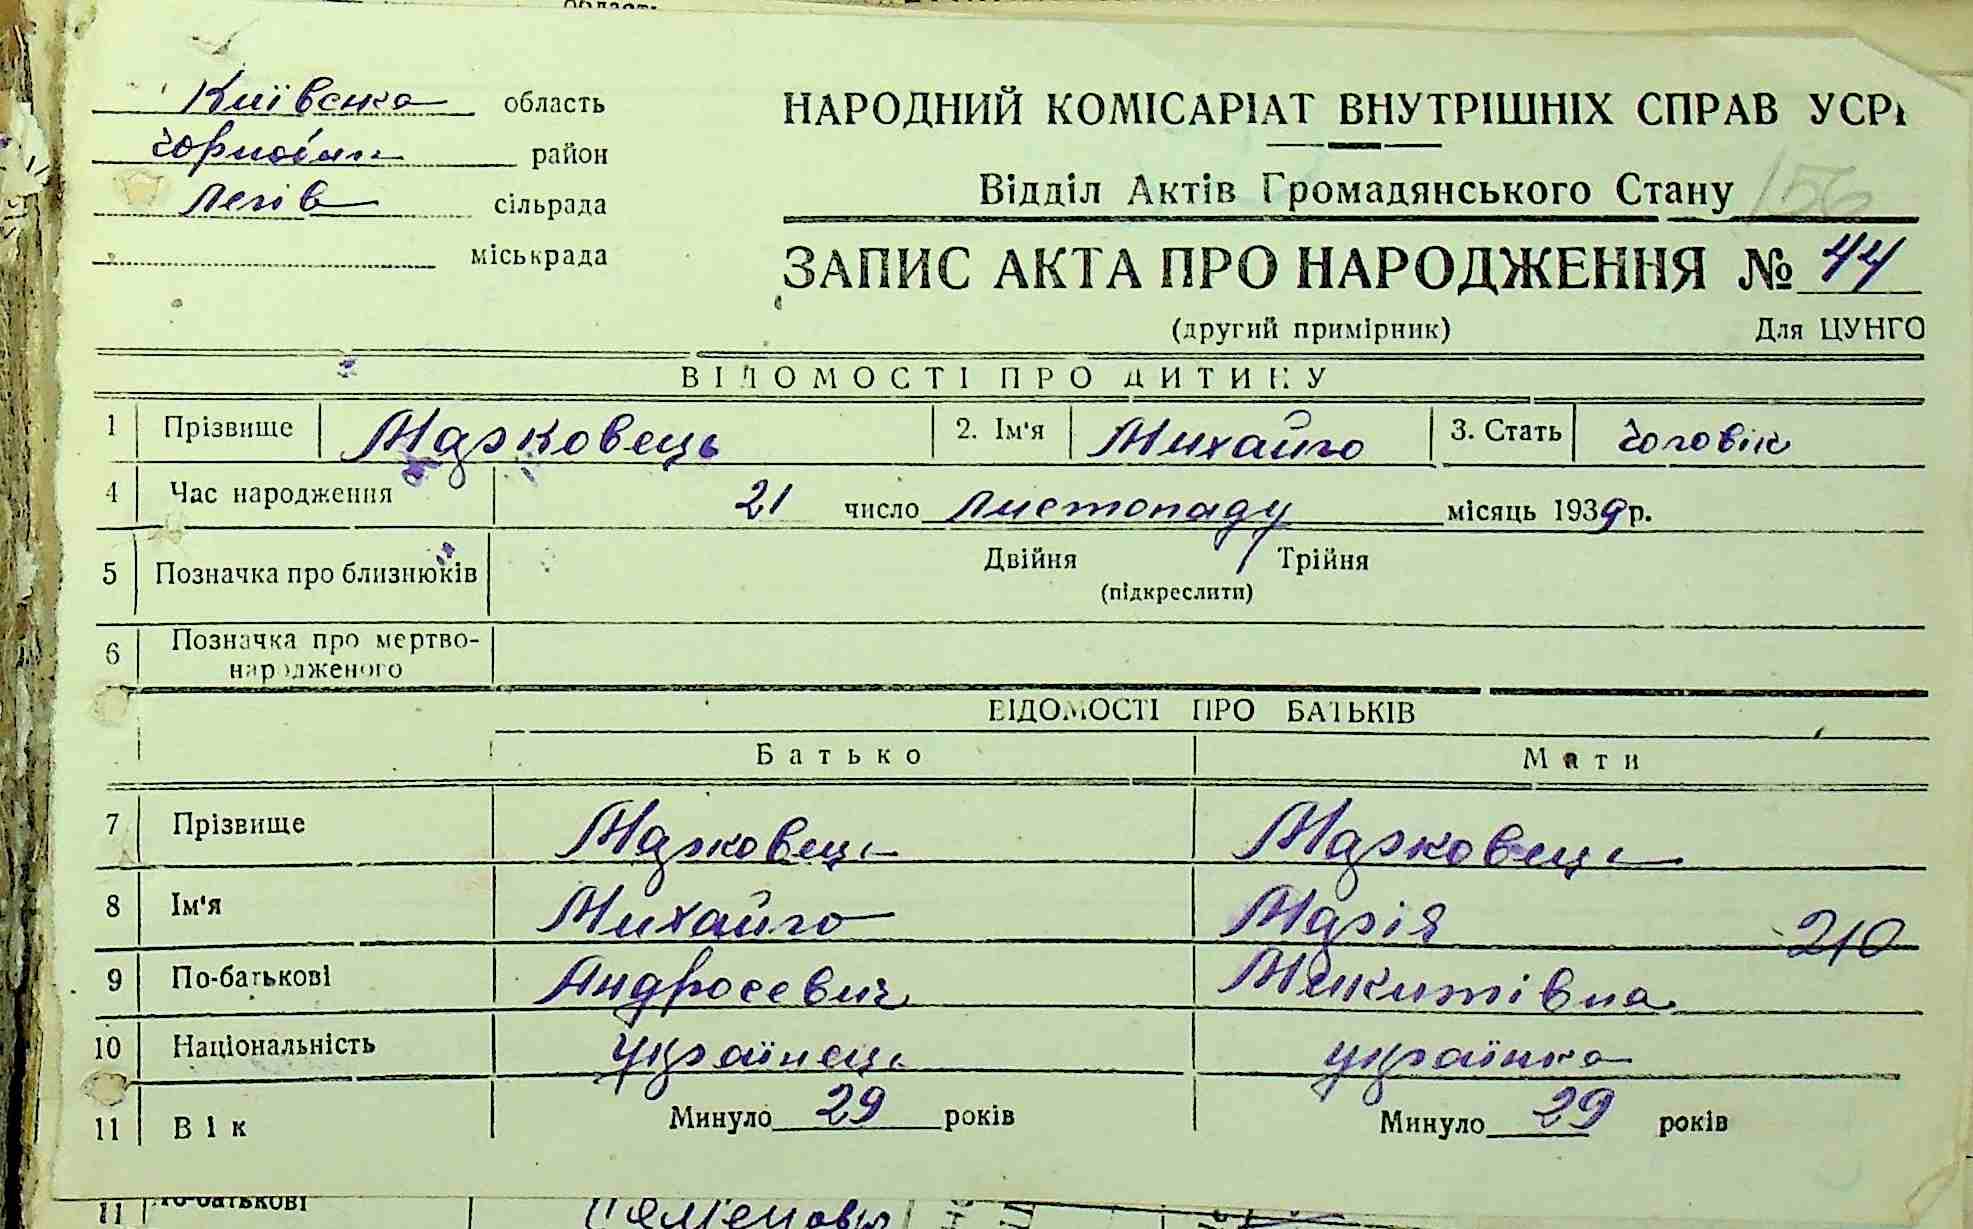 Київська область
Чорнобил. район
сільрада
міськрада
НАРОДНИЙ КОМІСАРІАТ ВНУТРІШНІХ СПРАВ УСРР
Відділ Актів Громадянського Стану
156
ЗАПИС АКТА ПРО НАРОДЖЕННЯ № 44
(другий примірник) Для ЦУНГО
ВІДОМОСТІ ПРО ДИТИНУ
1 Прізвище Марковець 2. Ім'я Михайло 3. Стать чоловік
4 Час народження 21 число листопаду місяць 1939 р.
5 Позначка про близнюків Двійня Трійня
(підкреслити)
6 Позначка про мертво-
народженого
ВІДОМОСТІ ПРО БАТЬКІВ
Батько Мати
7 Прізвище Марковець Марковець
8 Ім'я Михайло Марія 210
9 По-батькові Андросевич Микитівна
10 Національність українець українка
11 Вік Минуло 29 років Минуло 29 років
11 По-батькові